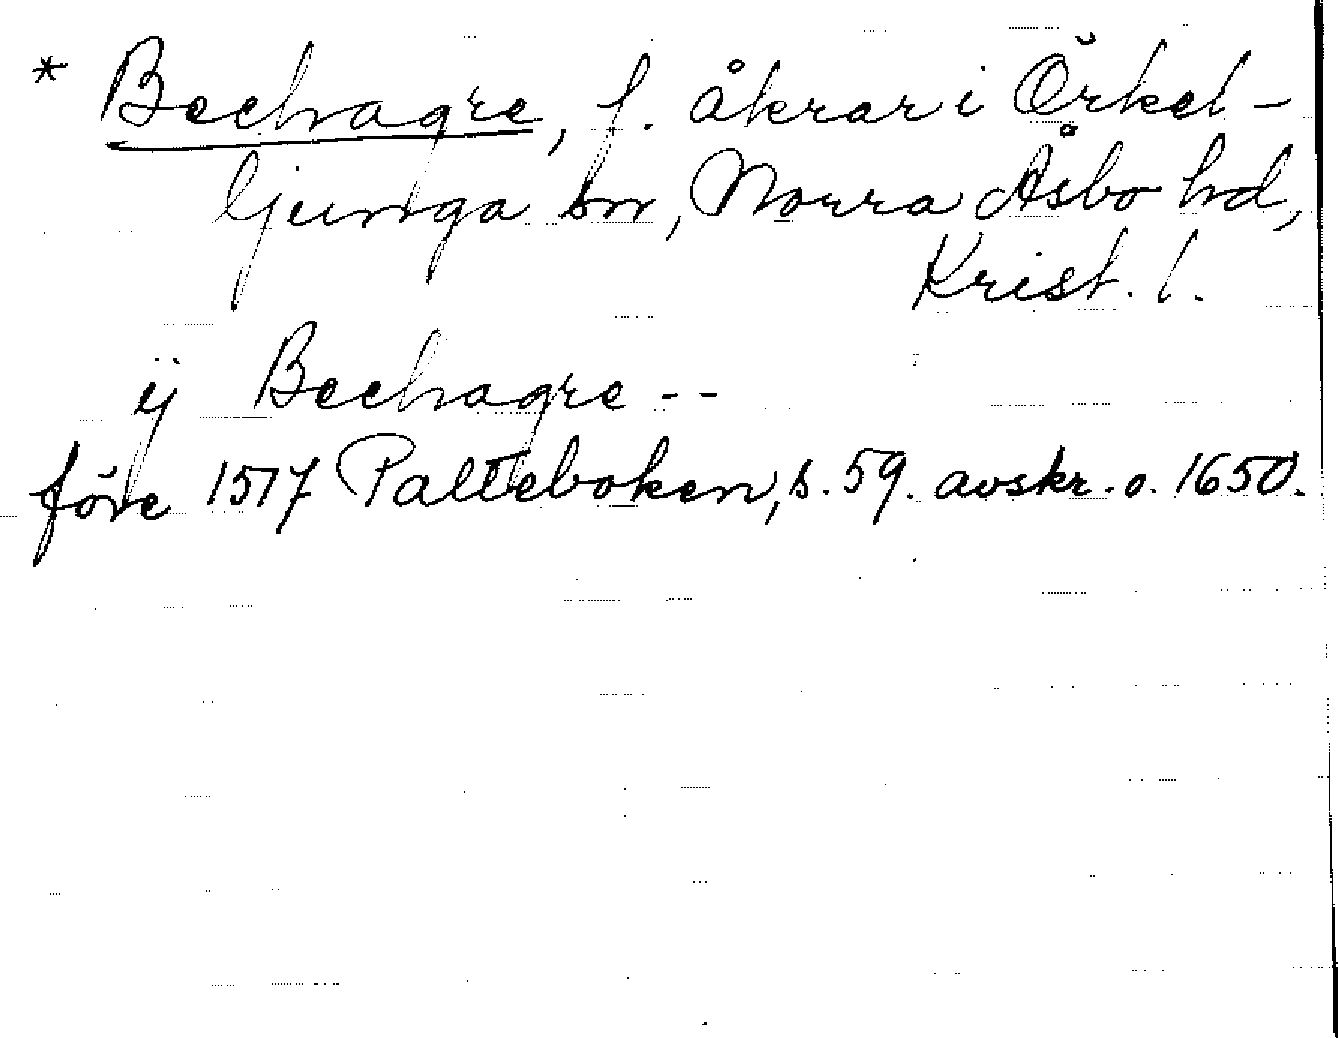 * Bechagre, f. åkrar i Örkel-
ljunga sn, Norra Åsbo hd,
Krist. l.
ij Bechagre --
före 1517 Palteboken, s. 59. avskr. o. 1650.